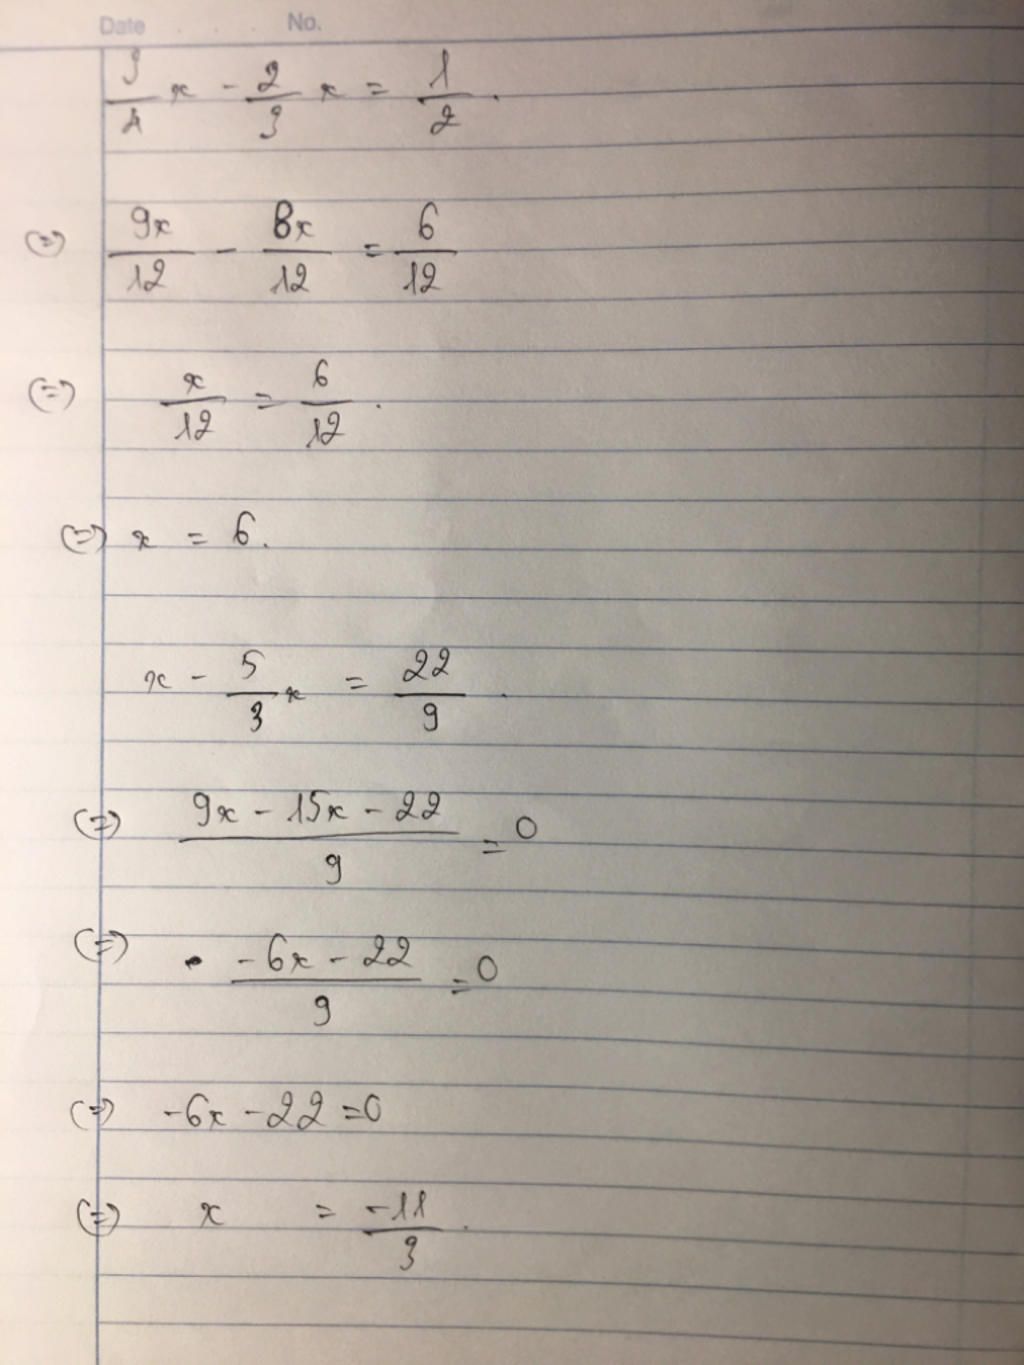 Date No.
3/4 x - 2/3 x = 1/2 .
(=) 9x/12 - 8x/12 = 6/12
(=) x/12 = 6/12 .
(=) x = 6.
x - 5/3 x = 22/9 .
(=) (9x - 15x - 22)/9 = 0
(=) (-6x - 22)/9 = 0
(=) -6x - 22 = 0
(=) x = -11/3 .